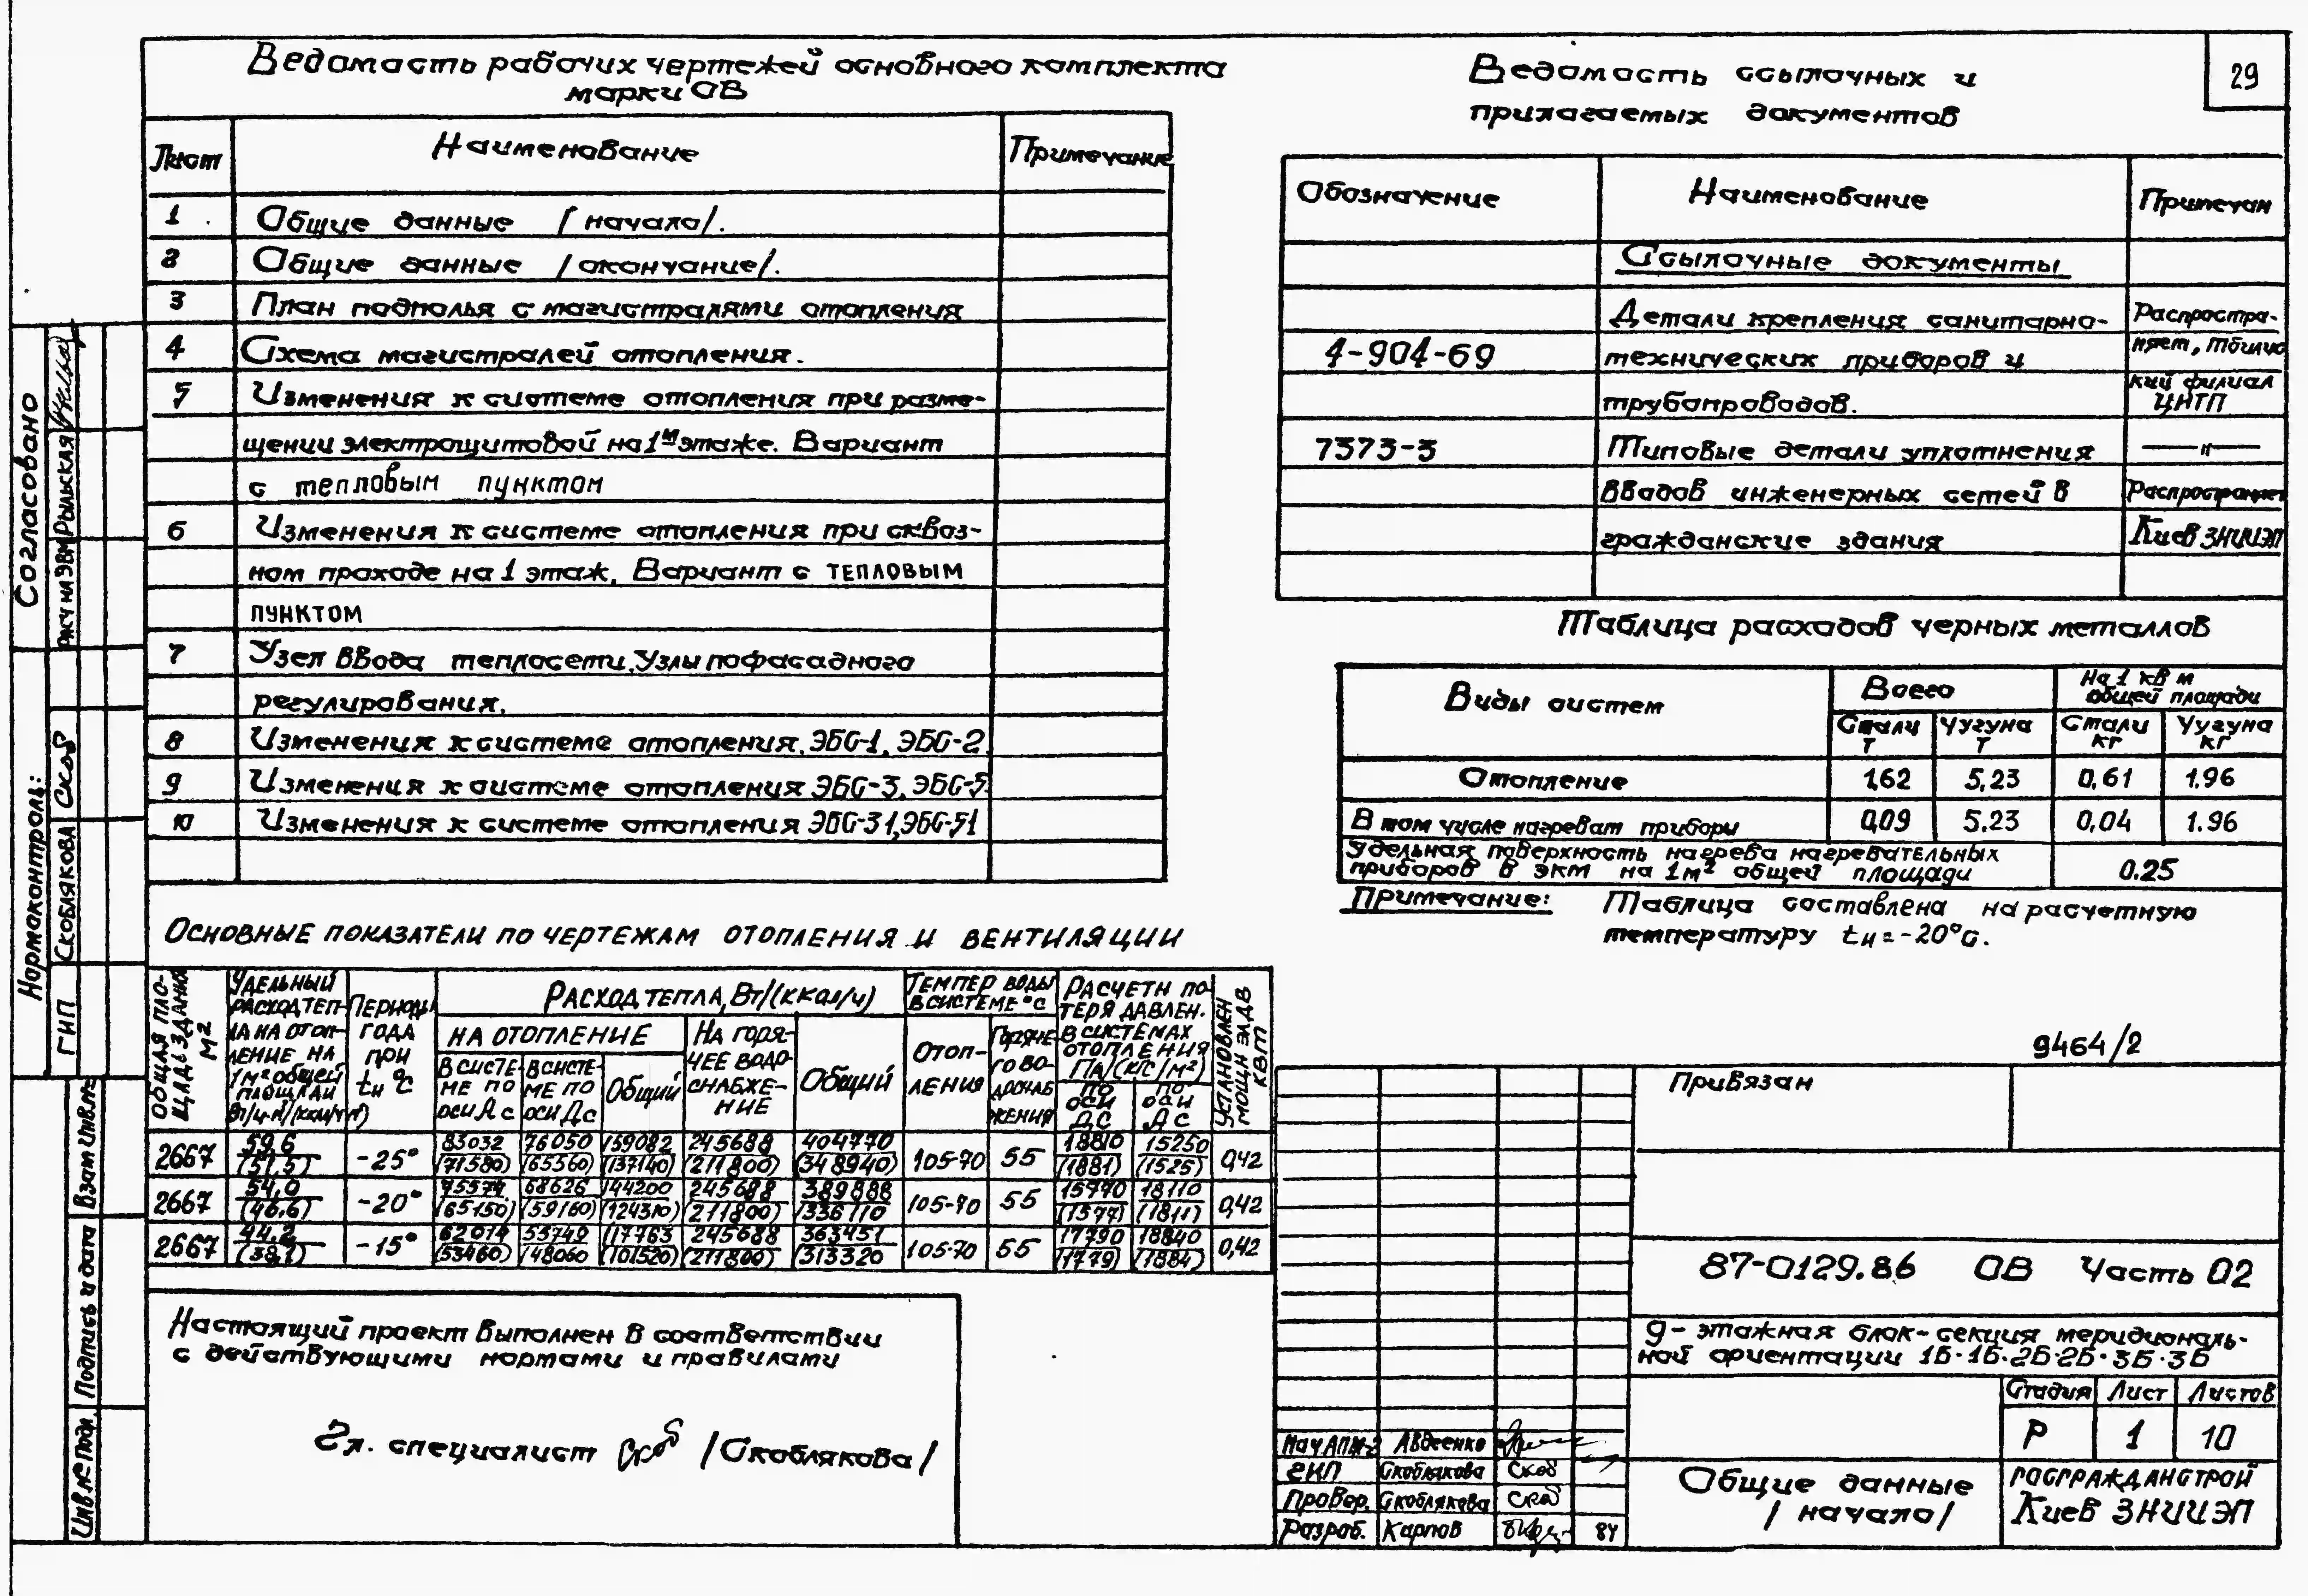 29
Ведомость рабочих чертежей основного комплекта
марки ОВ
Лист Наименование Примечание
1 Общие данные /начало/.
2 Общие данные /окончание/.
3 План подполья с магистралями отопления
4 Схема магистралей отопления.
5 Изменения к системе отопления при разме-
щении электрощитовой на 1м этаже. Вариант
с тепловым пунктом
6 Изменения к системе отопления при сквоз-
ном проходе на 1 этаж. Вариант с тепловым
пунктом
7 Узел ввода теплосети. Узлы пофасадного
регулирования.
8 Изменения к системе отопления. ЭБС-1, ЭБС-2.
9 Изменения к системе отопления ЭБС-3, ЭБС-5.
10 Изменения к системе отопления ЭБС-31, ЭБС-51
Ведомость ссылочных и
прилагаемых документов
Обозначение Наименование Примечан
Ссылочные документы
Детали крепления санитарно- Распростра-
4-904-69 технических приборов и няет, Тбилис
трубопроводов. кий филиал
ЦИТП
7373-3 Типовые детали уплотнения —〃—
вводов инженерных сетей в Распространяет
гражданские здания Киев ЗНИИЭП
Таблица расходов черных металлов
Виды систем Всего На 1 кв м общей площади
Стали т Чугуна т Стали кг Чугуна кг
Отопление 1,62 5,23 0,61 1.96
В том числе нагреват приборы 0,09 5.23 0,04 1.96
Удельная поверхность нагрева нагревательных
приборов в экм на 1м² общей площади 0.25
Примечание: Таблица составлена на расчетную
температуру tн=-20°С.
Основные показатели по чертежам отопления и вентиляции
Общая площадь здания м2
Удельный расход тепла на отопление на 1м² общей площади
Периоды года при tн °С
Расход тепла, Вт/(ккал/ч)
На отопление
В системе по оси Ас
В системе по оси Дс
Общий
На горячее водоснабжение
Общий
Темпер воды в системе °С
Отопления
Горячего водоснабжения
Расчетн потеря давлен. в системах отопления Па/(кгс/м²)
По оси Дс
По оси Ас
Установлен мощн эл.дв кВт
2667 59,6 (51,5) -25° 83032 (71580) 76050 (65560) 159082 (137140) 245688 (211800) 404770 (348940) 105-70 55 18810 (1881) 15250 (1525) 0,42
2667 54,0 (46,6) -20° 75574 (65150) 68626 (59160) 144200 (124310) 245688 (211800) 389888 (336110) 105-70 55 15770 (1577) 18110 (1811) 0,42
2667 44,2 (38,1) -15° 62014 (53460) 55749 (48060) 117763 (101520) 245688 (211800) 363451 (313320) 105-70 55 17790 (1779) 18840 (1884) 0,42
Настоящий проект выполнен в соответствии
с действующими нормами и правилами
Гл. специалист /Скоблякова/
9464/2
Привязан
87-0129.86 ОВ Часть 02
9-этажная блок-секция меридиональ-
ной ориентации 1Б·1Б·2Б·2Б·3Б·3Б
Стадия Лист Листов
Р 1 10
Общие данные
/начало/
Госгражданстрой
Киев ЗНИИЭП
Нач АПМ-2 Авдеенко
ГИП Скоблякова
Провер. Скоблякова
Разраб. Карпов 84
Согласовано
Расч на ЭВМ Рыльская
Нормоконтроль:
ГИП Скоблякова
Взам инв.№
Подпись и дата
Инв.№ подл.